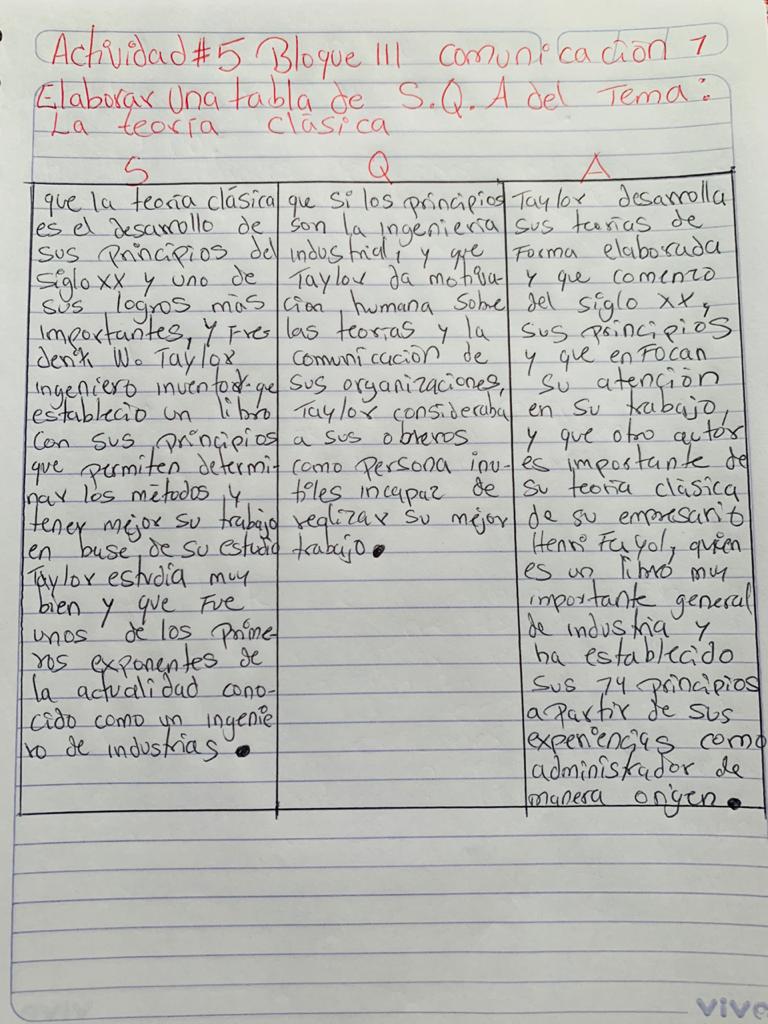 Actividad #5 Bloque III comunicación 1
Elaborar Una tabla de S.Q.A del Tema:
La teoría clásica
S
que la teoría clásica
es el desarrollo de
sus principios del
Siglo XX y uno de
sus logros más
importantes, y Fres
derik W. Taylor
ingeniero inventor que
establecio un libro
Con sus principios
que permiten determi
nar los métodos, y
tener mejor su trabajo
en base de su estudio
Taylor estudia muy
bien y que Fue
unos de los prime
ros exponentes de
la actualidad cono-
cido como un ingenie
ro de industrias.
Q
que si los principios
son la ingeniería
industrial, y que
Taylor da motiva-
cion, humana sobre
las teorías y la
comunicación de
sus organizaciones,
Taylor consideraba
a sus obreros
como persona inu-
tiles incapaz de
realizar su mejor
trabajo.
A
Taylor desarrolla
sus teorías de
Forma elaborada
y que comenzo
del siglo XX,
sus principios
y que enFocan
su atención
en su trabajo,
y que otro autor
es importante de
su teoría clásica
de su empresario
Henri Fayol, quien
es un libro muy
importante general
de industria y
ha establecido
sus 14 principios
a partir de sus
experiencias como
administrador de
manera origen.
vive